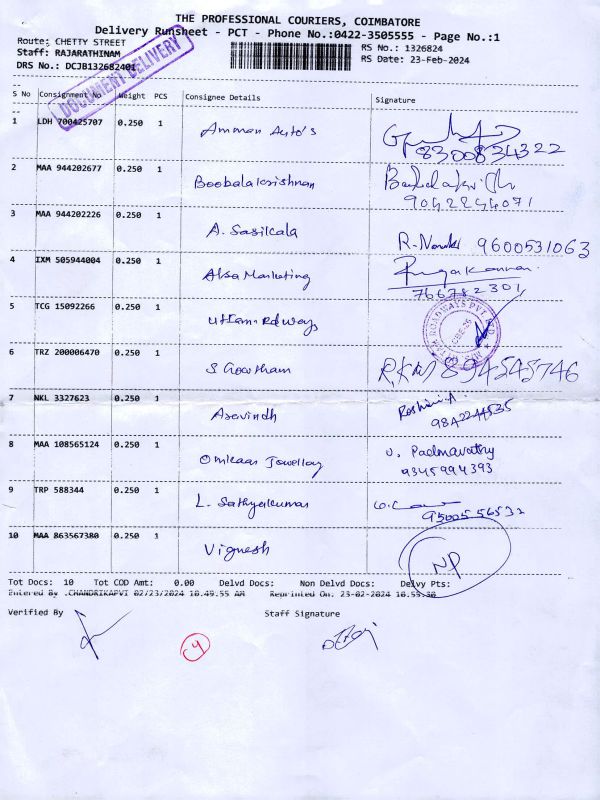 THE PROFESSIONAL COURIERS, COIMBATORE
Delivery Runsheet - PCT - Phone No.:0422-3505555 - Page No.:1
Route: CHETTY STREET
RS No.: 1326824
Staff: RAJARATHINAM
RS Date: 23-Feb-2024
DRS No.: DCJB132682401
DOCUMENT DELIVERY
S No Consignment No Weight PCS Consignee Details Signature
1 LDH 700425707 0.250 1 Amman Auto's
8300834322
2 MAA 944202677 0.250 1 Boobalakrishnan
9042244071
3 MAA 944202226 0.250 1 A. Sasilcala R. 9600531063
4 IXM 505944004 0.250 1 Alsa Marketing
766782301
5 TCG 15092266 0.250 1
ROADWAYS PVT LTD
6 TRZ 200006470 0.250 1 S Gowtham 894545746
7 NKL 3327623 0.250 1 Aravindh
9842244535
8 MAA 108565124 0.250 1 Omkaar Jewellery U. Padmavathy
9345994393
9 TRP 588344 0.250 1 L. Sathyakumar
95005 56532
10 MAA 863567380 0.250 1 Vignesh NP
Tot Docs: 10 Tot COD Amt: 0.00 Delvd Docs: Non Delvd Docs: Delvy Pts:
Entered By .CHANDRIKAPVI 02/23/2024 10.49.55 AM Reprinted On: 23-02-2024 10.55.30
Verified By Staff Signature